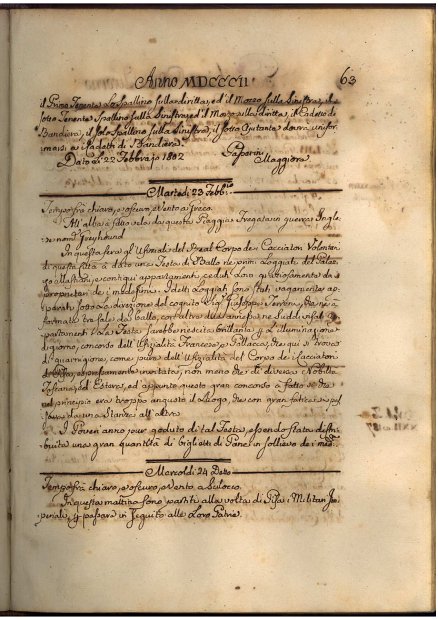 Anno MDCCCII
63
il Primo Tenente Lo Spallino sulla diritta, ed il Mozzo sulla Sinistra, il
Sotto Tenente Spallino sulla Sinistra, ed il Mozzo sulla diritta, il Cadetto di
Bandiera, il solo Spallino sulla Sinistra, il Sotto Ajutante dovrà unifor-
marsi ai Cadetti di Bandiera.
Dato li 22 Febbrajo 1802
Maggiore
Martedì 23 Febb.
Tempo frà chiaro, e oscuro, e Vento a Greco.
All' alba à fatto vela da questa Piaggia Fregata in guerra Ingle-
se nom. Greyhound
In questa sera gl' Ufiziali del Real Corpo dei Cacciatori Volontari
di questa Città à dato una Festa di Ballo nei primi Loggiati del Palaz-
contigui appartamenti ceduti Loro gratuitamente da i
proprietari de i medesimi. I detti Loggiati sono stati vagamente ap-
parati sotto La direzione del cognito Sig. Giuseppe Terreni, che ne à
formato tre sale da ballo, con altre due annesse ne i suddivisati ap-
partamenti. La Festa sarebbe riescita brillante p. L' illuminazione a
giorno, concorso dell' Ufizialità Francese, e Pollacca, che qui si trova
di guarnigione, come pure dell' Ufizialità del Corpo dei Cacciatori
di Pisa, espressamente invitata, non meno che di diversa Nobiltà
Toscana, ed Estera, ed appunto questo gran concorso à fatto sì che
nel principio era troppo angusto il Luogo, che con gran fatica si po-
teva da una Stanza all' altra.
I Poveri anno pure goduto di tal Festa, essendo stata distri-
buita una gran quantità di biglietti di Pane in sollievo de i med.
Mercoldì 24 Detto
Tempo frà chiaro, e oscuro, e Vento a Scilocco.
In questa mattina sono partiti alla volta di Pisa i Militari Im-
periali, p. passare in seguito alle Loro Patrie.